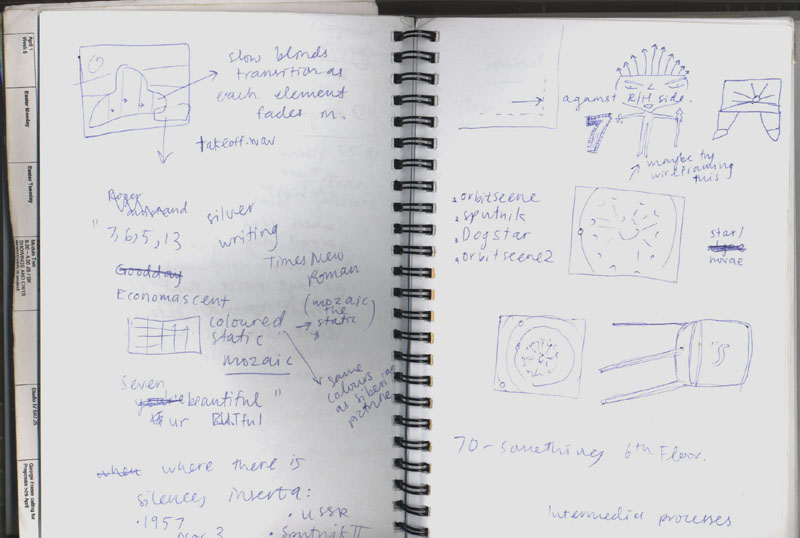 April 1
Week 5
Easter Monday
Easter Tuesday
slow blends
transition as
each element
fades in.
takeoff.wav
Roger
"
7, 6, 5, 13
silver
writing
Times New
Roman
Goodday
Economascent
coloured
static
(mozaic
the
→ static)
"
mozaic
same
colours
as siberian
picture
Seven
beautiful "
ur BUTful
when where there is
silences insert a:
• 1957
• USSR
• Sputnik II
→
against R/H side.
7
↗ maybe try
wireframing
this
1. orbitscene
2. sputnik
3. Dogstar
4. orbitscene2
star/
novae
70 - somethings 6th Floor.
Intermedia processes